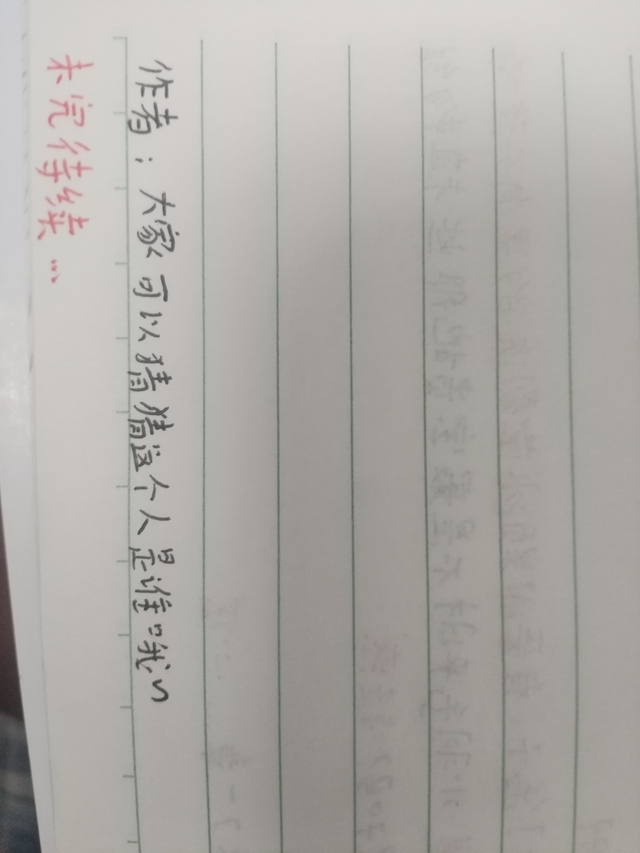 作者：大家可以猜猜这个人是谁哦~
未完待续…